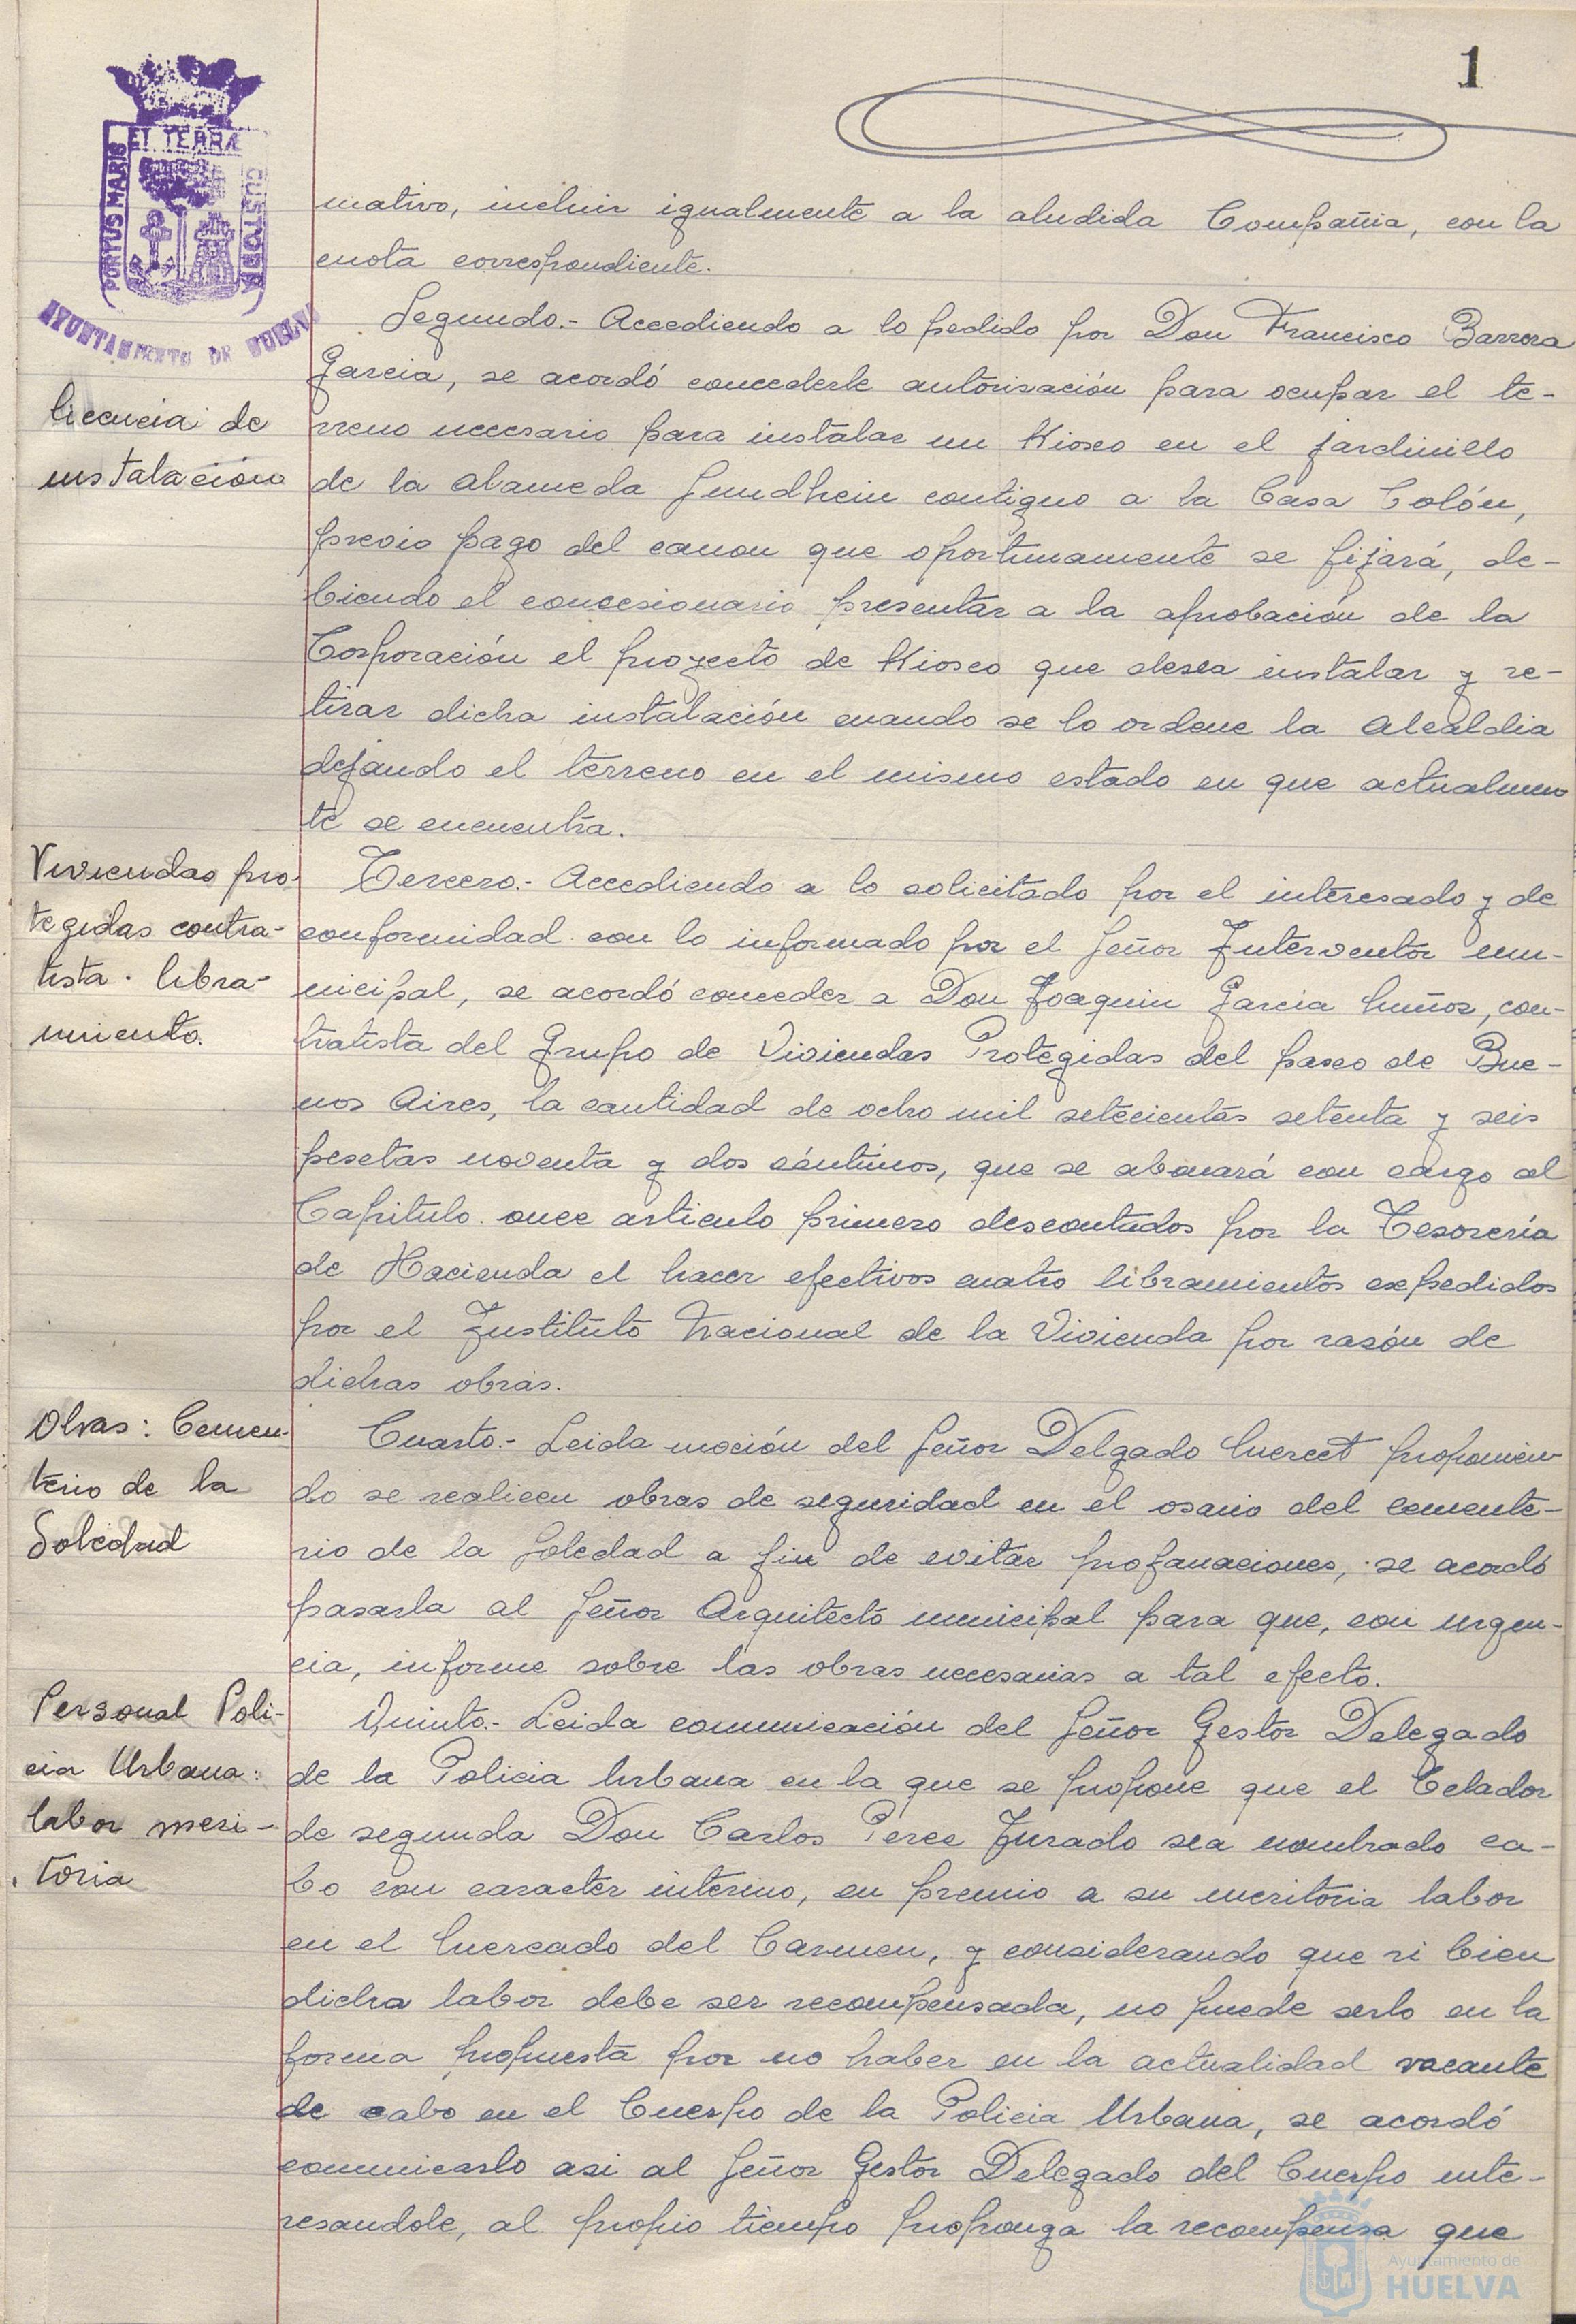 1
ET TERRÆ
PORTUS MARIS
CUSTODIA
AYUNTAMIENTO DE HUELVA
mativo, incluir igualmente a la aludida Compañia, con la
cuota correspondiente.
Segundo.- Accediendo a lo pedido por Don Francisco Barrera
Garcia, se acordó concederle autorisación para ocupar el te-
Licencia de
rreno necesario para instalar un Kiosco en el jardinillo
instalación
de la Alameda Sundhein contiguo a la Casa Colón,
previo pago del canon que oportunamente se fijará, de-
biendo el concesionario presentar a la aprobación de la
Corporación el proyecto de Kiosco que desea instalar y re-
tirar dicha instalación cuando se lo ordene la Alcaldia
dejando el terreno en el mismo estado en que actualmen
te se encuentra.
Viviendas pro-
Tercero.- Accediendo a lo solicitado por el interesado y de
tegidas contra-
conformidad con lo informado por el Señor Interventor mu-
tista. libra-
nicipal, se acordó conceder a Don Joaquin Garcia Muñoz, con-
miento.
tratista del Grupo de Viviendas Protegidas del paseo de Bue-
nos Aires, la cantidad de ocho mil setecientas setenta y seis
pesetas noventa y dos céntimos, que se abonará con cargo al
Capitulo once articulo primero descontados por la Tesorería
de Hacienda el hacer efectivos cuatro libramientos expedidos
por el Instituto Nacional de la Vivienda por rasón de
dichas obras.
Obras: Cemen-
Cuarto.- Leida moción del Señor Delgado Mercet proponien
terio de la
do se realicen obras de seguridad en el osario del cemente-
Soledad
rio de la Soledad a fin de evitar profanaciones, se acordó
pasarla al Señor Arquitecto municipal para que, con urgen-
cia, informe sobre las obras necesarias a tal efecto.
Personal Poli-
Quinto.- Leida comunicación del Señor Gestor Delegado
cia Urbana:
de la Policia Urbana en la que se propone que el Celador
labor meri-
de segunda Don Carlos Perez Jurado sea nombrado ca-
toria
bo con caracter interino, en premio a su meritoria labor
en el Mercado del Carmen, y considerando que si bien
dicha labor debe ser recompensada, no puede serlo en la
forma propuesta por no haber en la actualidad vacante
de cabo en el Cuerpo de la Policia Urbana, se acordó
comunicarlo asi al Señor Gestor Delegado del Cuerpo inte-
resandole, al propio tiempo proponga la recompensa que
Ayuntamiento de
HUELVA